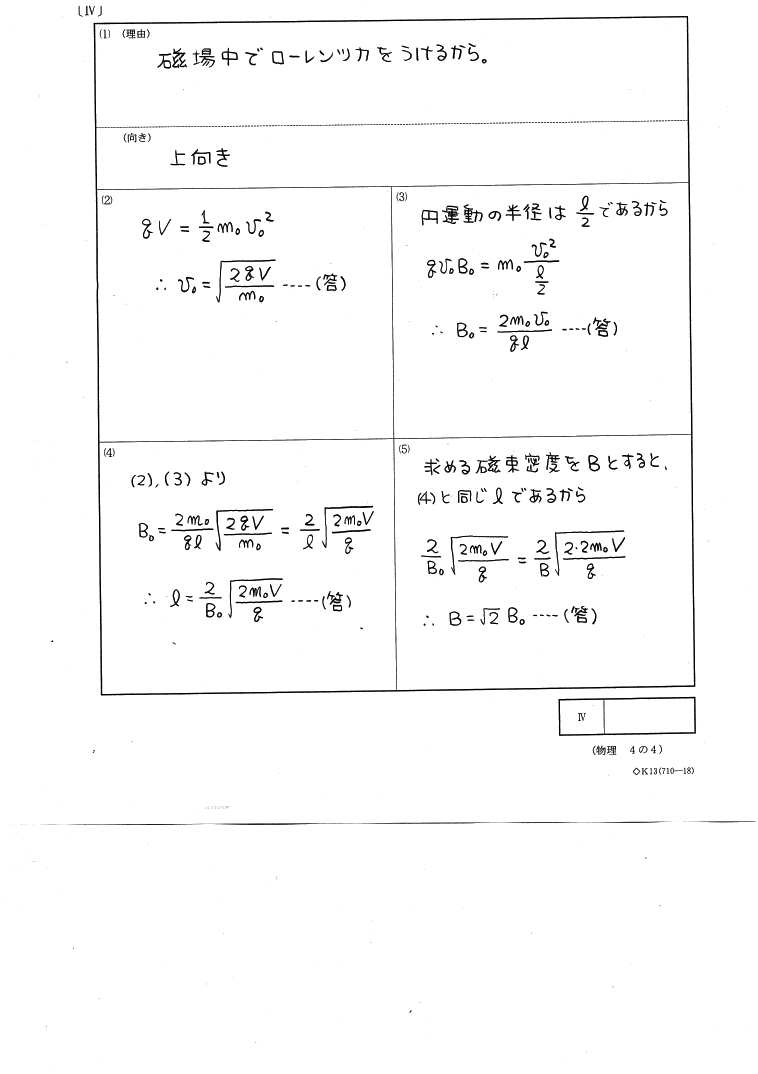 〔Ⅳ〕
(1) (理由)
磁場中でローレンツ力をうけるから。
(向き)
上向き
(2)
qV = 1/2 m₀v₀²
∴ v₀ = √(2qV/m₀) ----(答)
(3)
円運動の半径は l/2 であるから
qv₀B₀ = m₀ v₀²/(l/2)
∴ B₀ = 2m₀v₀/ql ----(答)
(4)
(2), (3) より
B₀ = 2m₀/ql √(2qV/m₀) = 2/l √(2m₀V/q)
∴ l = 2/B₀ √(2m₀V/q) ----(答)
(5)
求める磁束密度をBとすると、
(4)と同じ l であるから
2/B₀ √(2m₀V/q) = 2/B √(2·2m₀V/q)
∴ B = √2 B₀ ----(答)
Ⅳ
(物理 4の4)
◇K13(710—18)